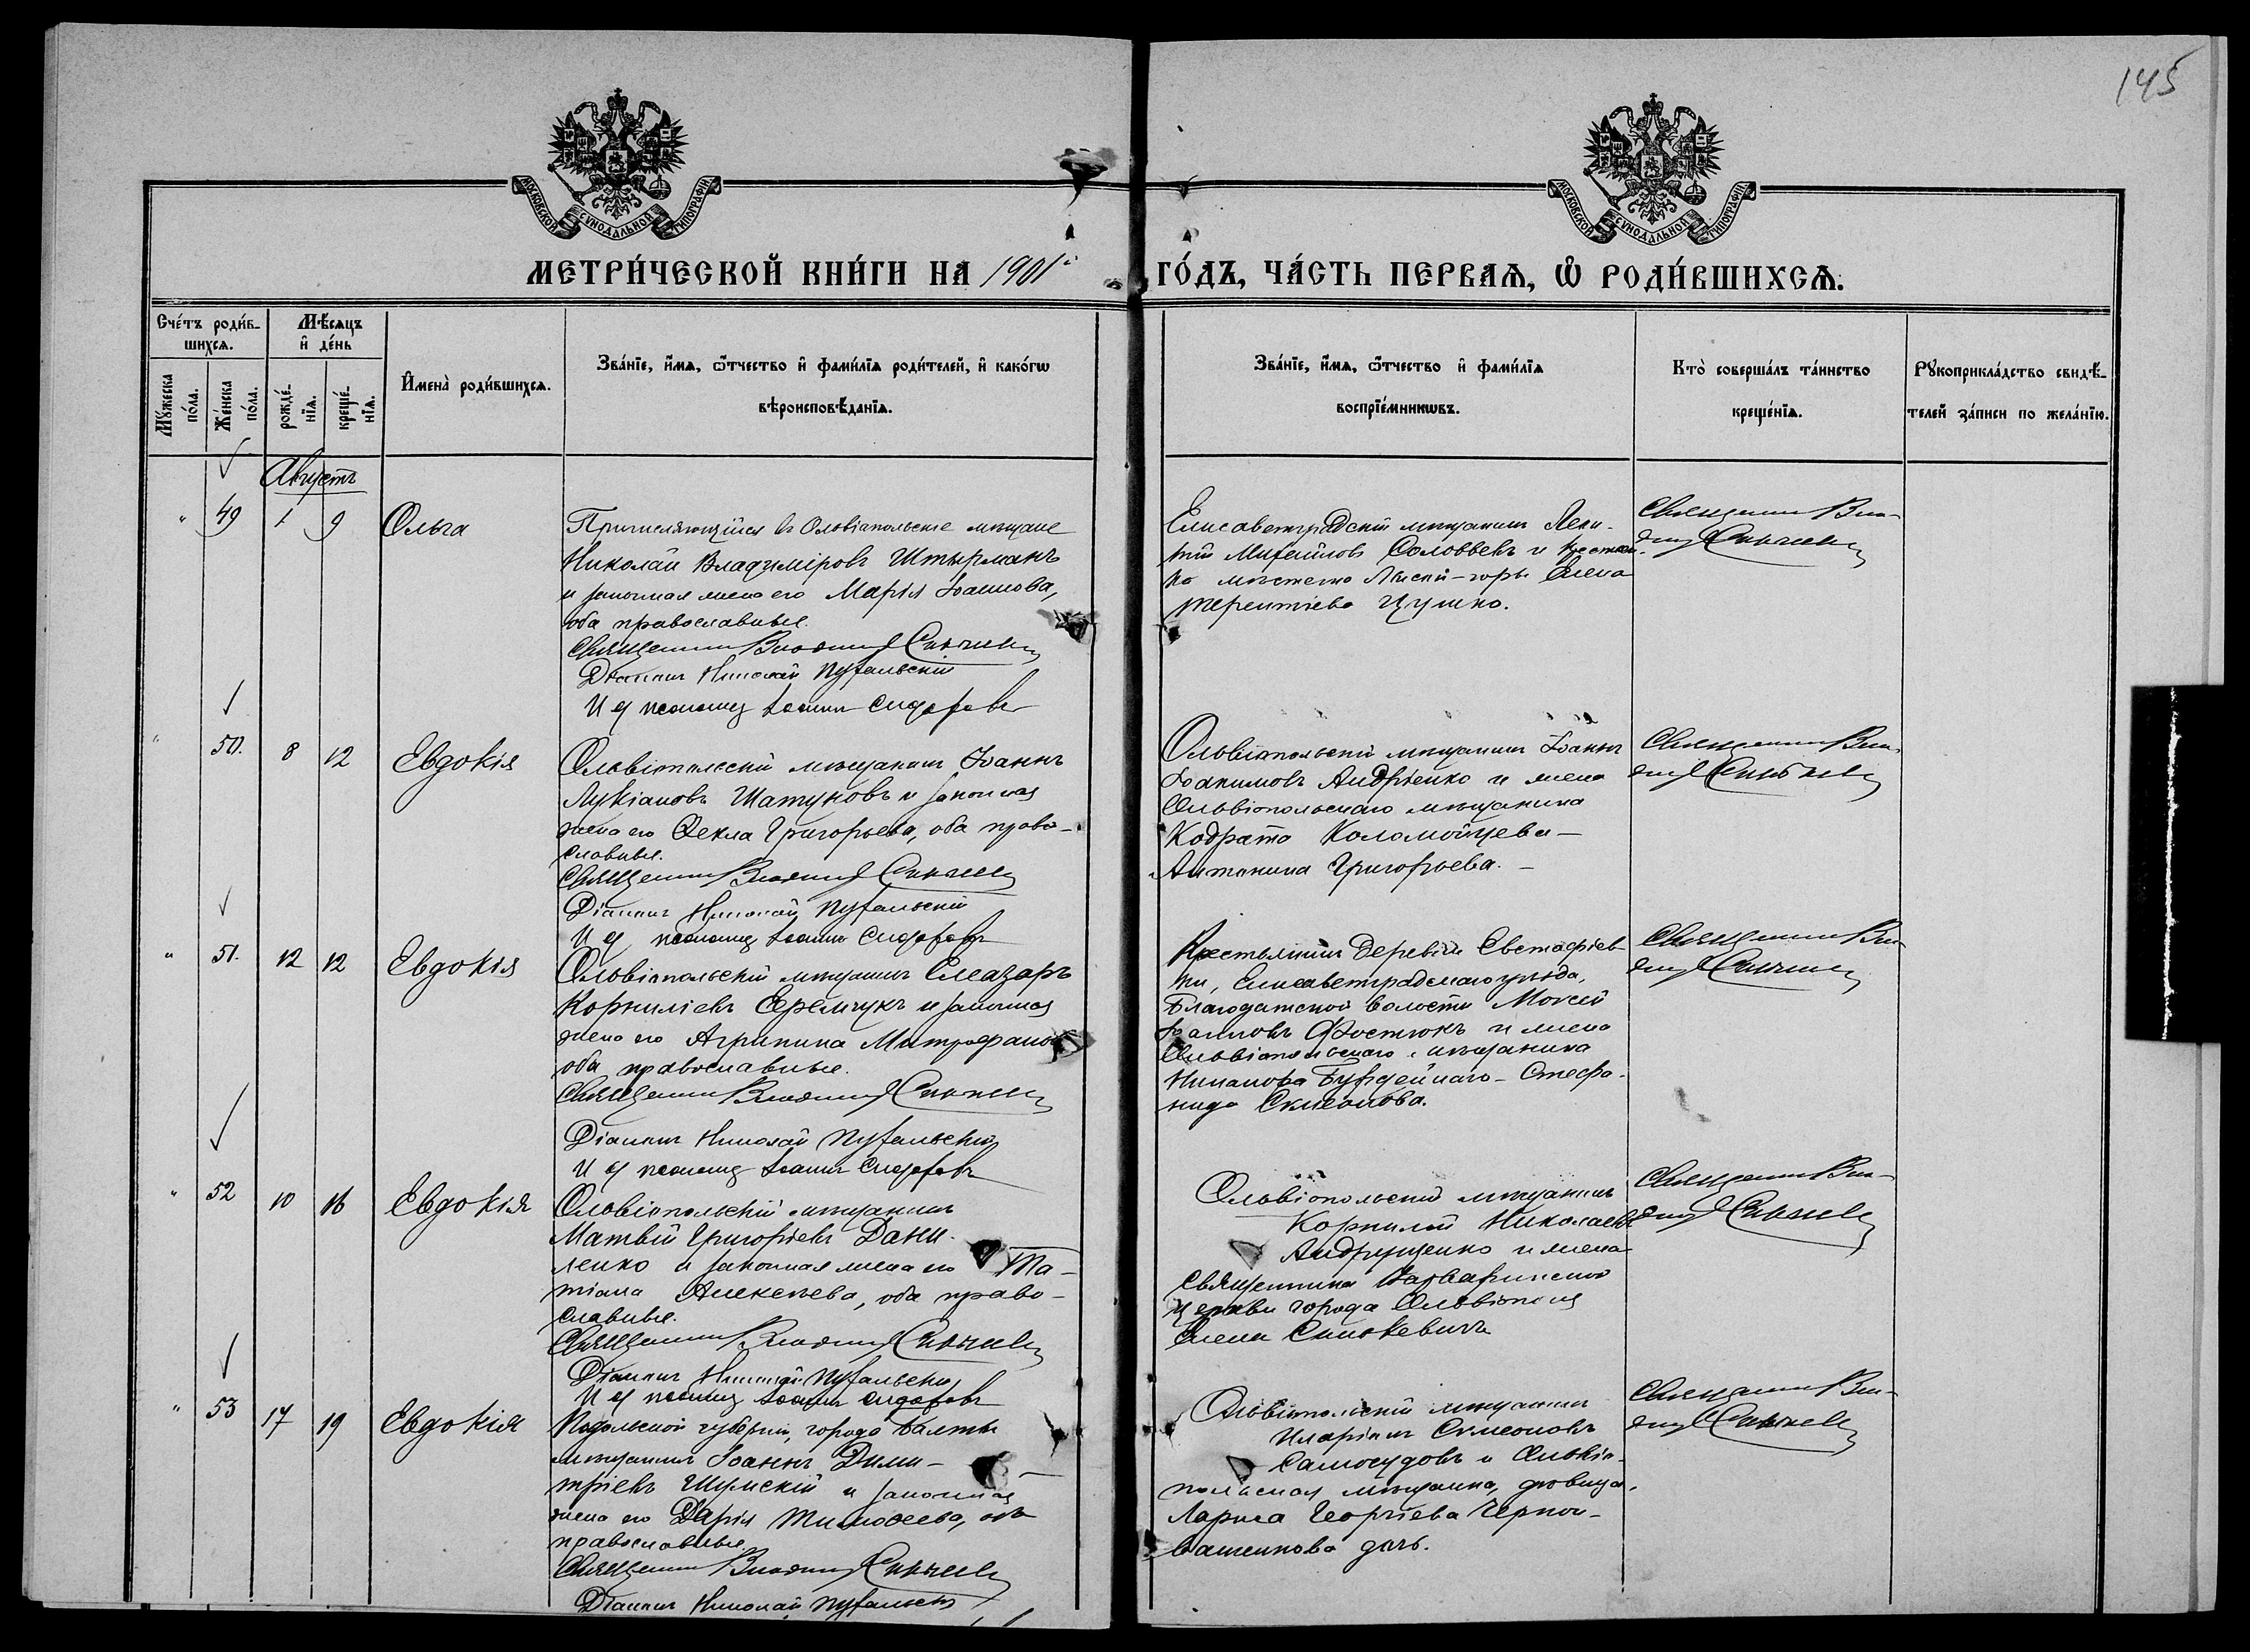 145
МОСКОВСКОЙ СУНОДАЛЬНОЙ ТИПОГРАФІИ
МОСКОВСКОЙ СУНОДАЛЬНОЙ ТИПОГРАФІИ
МЕТРИ́ЧЕСКОЙ КНИ́ГИ НА 1901й ГО́ДЪ, ЧА́СТЬ ПЕРВАѦ, Ѡ РОДИ́ВШИХСѦ.
Сче́тъ роди́в-
шихсѧ.
Мѣ́сяцъ
и де́нь
Мꙋ́жеска по́ла.
Же́нска по́ла.
рожде́-
нїѧ.
креще́-
нїѧ.
Имена̀ роди́вшихсѧ.
Зва́нїе, и́мѧ, ѻ́тчество и фами́лїѧ роди́телей, и како́гѡ
вѣроисповѣ́данїѧ.
Зва́нїе, и́мѧ, ѻ́тчество и фами́лїѧ
воспрїе́мникѡвъ.
Кто̀ соверша́лъ та́инство
креще́нїѧ.
Рꙋкоприкла́дство свидѣ́-
телей за́писи по жела́нїю.
Августъ
49 1 9 Ольга
Причисляющійся въ Ольвіопольскіе мѣщане
Николай Владиміровъ Штырманъ
и законная жена его Марія Іоаннова,
оба православные.
Священникъ Владимиръ
Діаконъ Николай
И д псаломщ Іоаннъ Сидоровъ
Елисаветградскій мѣщанинъ
Соловьевъ и крестьян-
ка мѣстечка Лысой-горы Елена
Терентіева Цушко.
Священникъ Вла-
димиръ
50. 8 12 Евдокія
Ольвіопольскій мѣщанинъ Іоаннъ
Лукіановъ Шатуновъ и законная
жена его Ѳекла Григорьева, оба право-
славные.
Священникъ Владимиръ
Діаконъ Николай
И д псаломщ Іоаннъ Сидоровъ
Ольвіопольскій мѣщанинъ Іоаннъ
Іоакимовъ Андріенко и жена
Ольвіопольскаго мѣщанина
Кодрата Коломойцева -
Антонина Григорьева. -
Священникъ Вла-
димиръ
51. 12 12 Евдокія
Ольвіопольскій мѣщанинъ Елеазаръ
Корниліевъ Еремчукъ и законная
жена его Агрипина Митрофанова
оба православные.
Священникъ Владимиръ
Діаконъ Николай
И д псаломщ Іоаннъ Сидоровъ
Крестьянинъ деревни Евстафіев-
ки, Елисаветградскаго уѣзда,
Благодатской волости Моисей
Іоанновъ Фостюкъ и жена
Ольвіопольскаго мѣщанина
Стефа-
нида Симеонова.
Священникъ Вла-
димиръ
52 10 16 Евдокія
Ольвіопольскій мѣщанинъ
Матвій Григоріевъ Дани-
ленко и законная жена его Та-
тіана Алексѣева, оба право-
славные.
Священникъ Владимиръ
Діаконъ Николай
И д псаломщ Іоаннъ Сидоровъ
Ольвіопольскій мѣщанинъ
Корнилій Николаевъ
Андрущенко и жена
священника Варваринской
церкви города Ольвіополя
Елена Синькевичъ
Священникъ Вла-
димиръ
53 17 19 Евдокія
Подольской губерніи, города Балты
мѣщанинъ Іоаннъ Дими-
тріевъ Шумскій и законная
жена его Дарія Тимоѳеева, оба
православные.
Священникъ Владимиръ
Діаконъ Николай
Ольвіопольскій мѣщанинъ
Иларіонъ Симеоновъ
Самосудовъ и Ольвіо-
польская мѣщанка, дѣвица
Лариса Георгіева Черно-
дочь.
Священникъ Вла-
димиръ